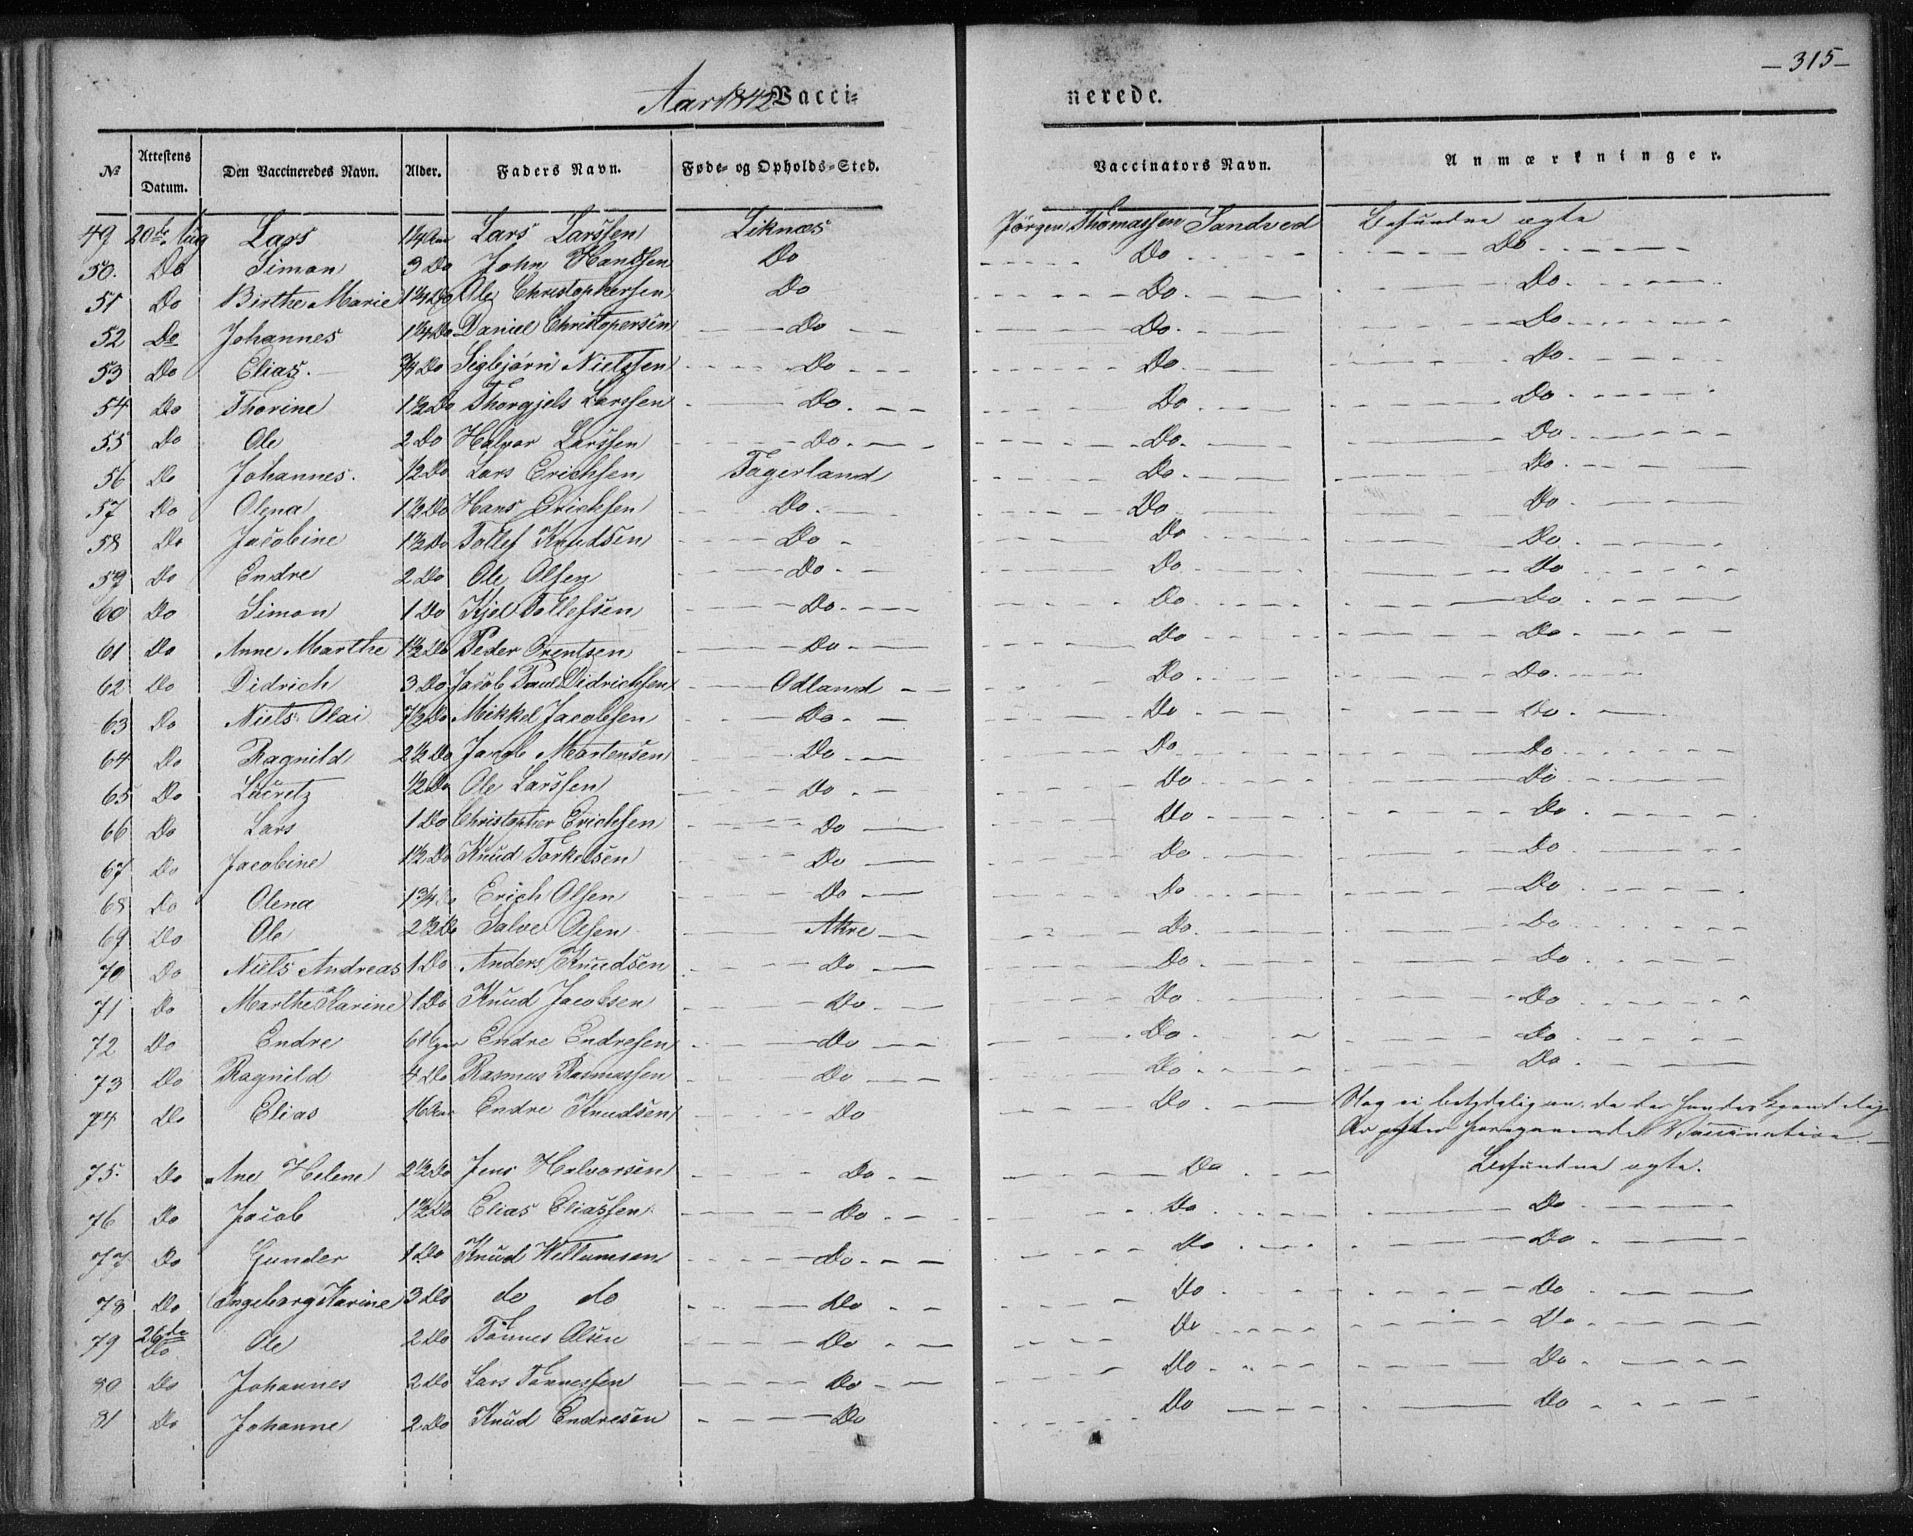 — 315 —
Aar 1842 Vacci- nerede.
№ | Attestens Datum. | Den Vaccineredes Navn. | Alder. | Faders Navn. | Føde- og Opholds-Sted. | Vaccinators Navn. | Anmærkninger.
49 | 20de Aug | Lars | 1¼ Aar | Lars Larssen | Liknæs | Jörgen Thomassen Sandved | Befundne ægte
50. | Do | Simon | 3 Do | John Hanssen | Do | Do | Do
51 | Do | Birthe Marie | 1¼ Do | Ole Christophersen | Do | Do | Do
52 | Do | Johannes | 1¼ Do | Daniel Christopersen | Do | Do | Do
53 | Do | Elias. | ¾ Do | Sigbjörn Nielssen | Do | Do | Do
54 | Do | Thorine | 1½ Do | Thorgjels Larssen | Do | Do | Do
55 | Do | Ole | 2 Do | Halvor Larssen | Do | Do | Do
56 | Do | Johannes. | ½ Do | Lars Erichsen | Fagerland | Do | Do
57 | Do | Olena | 1½ Do | Hans Erichsen | Do | Do | Do
58 | Do | Jacobine | 1½ Do | Tollef Knudsen | Do | Do | Do
59 | Do | Endre | 2 Do | Ole Olsen | Do | Do | Do
60 | Do | Simon | 1 Do | Kjel Tollefsen | Do | Do | Do
61 | Do | Anne Marthe | 1½ Do | Peder Orentsen | Do | Do | Do
62 | Do | Didrich | 3 Do | Jacob Paul Didrichsen | Odland | Do | Do
63 | Do | Niels Olai | ½ Do | Mikkel Jacobsen | Do | Do | Do
64 | Do | Ragnild | 2½ Do | Jacob Mortensen | Do | Do | Do
65 | Do | Lauretz | ½ Do | Ole Larssen | Do | Do | Do
66 | Do | Lars | 1 Do | Christopher Erichsen | Do | Do | Do
67 | Do | Jacobine | 1½ Do | Knud Torkelsen | Do | Do | Do
68 | Do | Olena | 1¾ Do | Erich Olsen | Do | Do | Do
69 | Do | Ole | 2½ Do | Salve Olsen | Akre | Do | Do
70 | Do | Niels Andreas | 1 Do | Anders Knudsen | Do | Do | Do
71 | Do | Marthe Karine | 1 Do | Knud Jacobsen | Do | Do | Do
72 | Do | Endre | 6 Uger | Endre Endresen | Do | Do | Do
73 | Do | Ragnild | 4 Do | Rasmus Rasmussen | Do | Do | Do
74 | Do | Elias | 16 Aar | Endre Knudsen | Do | Do | Slog ei betydelig an, da der fandes kjendelig
Ar efter foregaaende Vaccination.
75. | Do | Ane Helene | 2½ Do | Jens Halvorsen | Do | Do | Befundne ægte.
76 | Do | Jacob | 1½ Do | Elias Eliassen | Do | Do | Do
77 | Do | Gunder | 1 Do | Knud Willumsen | Do | Do | Do
78 | Do | Ingeborg Karine | 3 Do | do do | Do | Do | Do
79 | 26de Do | Ole | 2 Do | Tönnes Olsen | Do | Do | Do
80 | Do | Johannes | 2 Do | Lars Tönnessen | Do | Do | Do
81 | Do | Johanne | 2 Do | Knud Endresen | Do | Do | Do